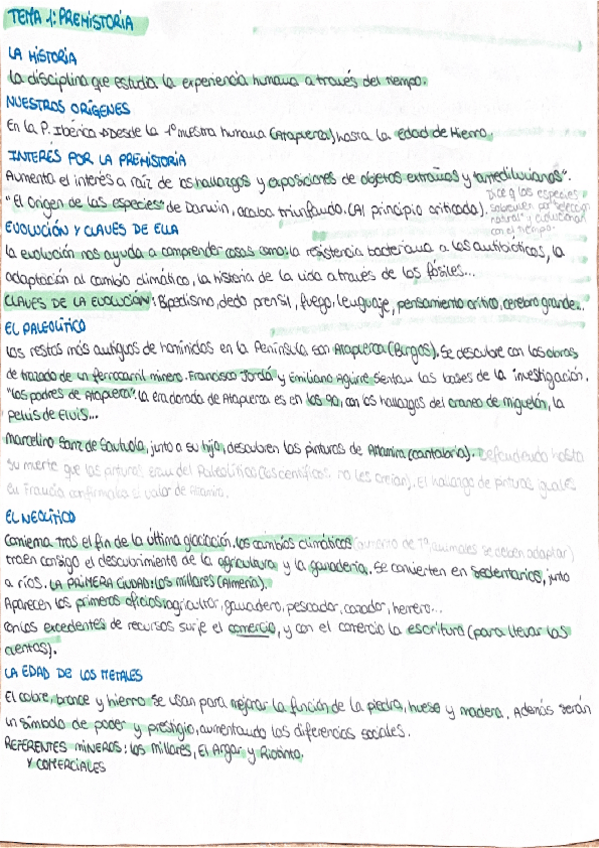 TEMA 1: PREHISTORIA
LA HISTORIA
La disciplina que estudia la experiencia humana a través del tiempo.
NUESTROS ORÍGENES
En la P. Ibérica → Desde la 1º muestra humana (Atapuerca) hasta la Edad de Hierro.
INTERÉS POR LA PREHISTORIA
Aumenta el interés a raíz de los hallazgos y exposiciones de objetos extraños y "antediluvianos".
"El Origen de las especies" de Darwin, acaba triunfando. (Al principio criticado).
Dice q las especies
sobreviven por selección
natural y evolucionan
con el tiempo.
EVOLUCIÓN Y CLAVES DE ELLA
La evolución nos ayuda a comprender cosas como: la resistencia bacteriana a los antibióticos, la
adaptación al cambio climático, la historia de la vida a través de los fósiles...
CLAVES DE LA EVOLUCIÓN: Bipedismo, dedo prensil, fuego, lenguaje, pensamiento crítico, cerebro grande...
EL PALEOLÍTICO
Los restos más antiguos de homínidos en la Península son Atapuerca (Burgos). Se descubre con las obras
de trazado de un ferrocarril minero. Francisco Jordá y Emiliano Aguirre sentan las bases de la investigación.
"Los padres de Atapuerca". La era dorada de Atapuerca es en los 90, con los hallazgos del craneo de miguelón, la
pelvis de Elvis...
Marcelino Sanz de Sautuola, junto a su hija, descubren las pinturas de Altamira (Cantabria). Defendiendo hasta
su muerte que las pinturas eran del Paleolítico (los científicos no les creían). El hallazgo de pinturas iguales
en Francia confirmaba el valor de Altamira.
EL NEOLÍTICO
Comienza tras el fin de la última glaciación. Los cambios climáticos (aumento de Tª, animales se deben adaptar)
traen consigo el descubrimiento de la agricultura y la ganadería. Se convierten en sedentarios, junto
a ríos. LA PRIMERA CIUDAD: Los Millares (Almería).
Aparecen los primeros oficios: agricultor, ganadero, pescador, cazador, herrero...
Con los excedentes de recursos surje el comercio, y con el comercio la escritura (para llevar las
cuentas).
LA EDAD DE LOS METALES
El cobre, bronce y hierro se usan para mejorar la función de la piedra, hueso y madera. Además serán
un símbolo de poder y prestigio, aumentando las diferencias sociales.
REFERENTES MINEROS: Los Millares, El Argar y Riotinto.
Y COMERCIALES